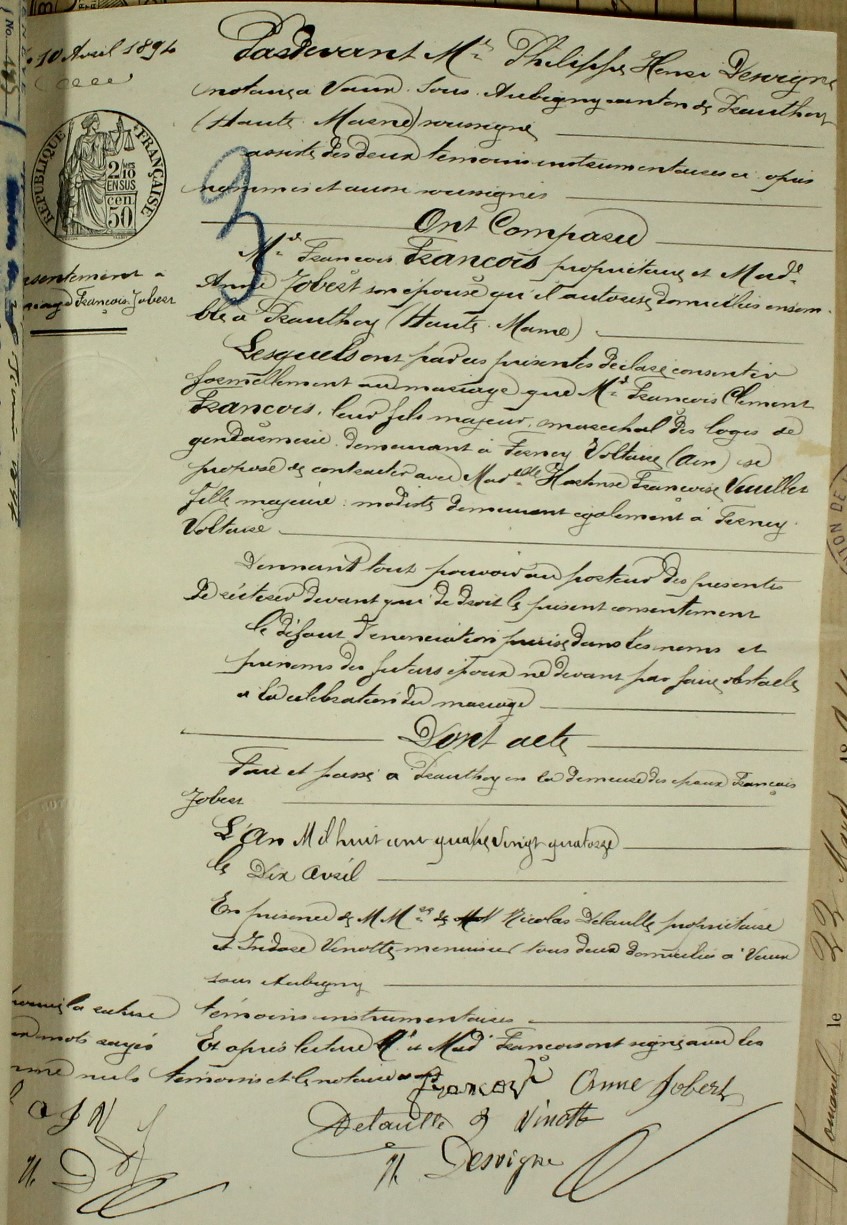 10 Avril 1894
RÉPUBLIQUE FRANÇAISE
2/10
EN SUS
50 cen
Consentement à
mariage François-Jobert
3
Pardevant Me Philippe Henri Desvigne
notaire à Vaux-Sous-Aubigny canton de Prauthoy
(Haute Marne) soussigné
assisté des deux témoins instrumentaires ci après
nommés et aussi soussignés
Ont Comparu
Mr François François propriétaire et Made
Anne Jobert son épouse qu'il autorise domiciliés ensem-
ble à Prauthoy (Haute-Marne)
Lesquels ont par ces présentes déclaré consentir
formellement au mariage que Mr François Clément
François, leur fils majeur, maréchal des logis de
gendarmerie demeurant à Ferney Voltaire (Ain) se
propose de contracter avec Madelle Hortense Françoise Vuillet
fille majeure modiste demeurant également à Ferney
Voltaire
Donnant tout pouvoir au porteur des présentes
de réitérer devant qui de droit le présent consentement
le défaut d'énonciation précise dans les noms et
prénoms des futurs époux ne devant pas faire obstacle
à la célébration du mariage
Dont acte
Fait et passé à Prauthoy en la demeure des époux François
Jobert
L'An Mil huit cent quatre vingt quatorze
le Dix Avril
En présence de MM Nicolas Delaulle propriétaire
et Vinotte menuisier tous deux domiciliés à Vaux
sous Aubigny
témoins instrumentaires
Et après lecture Mr et Made François ont signé avec les
témoins et le notaire
mots rayés
nuls
François Anne Jobert
Delaulle Vinotte
H. Desvigne
a J N
H. D